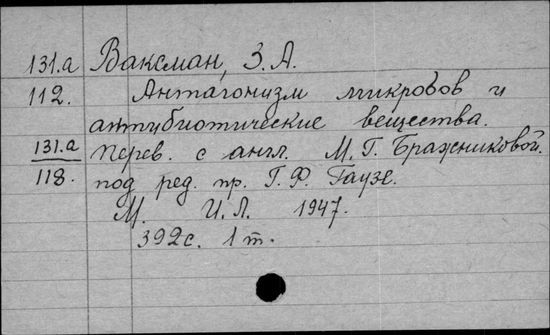 131.а Ваксман, З. А.
112. Антагонизм микробов и
антибиотические вещества.
131.а Перев. с англ. М. Г. Бражниковой.
118. под ред. пр. Г. Ф. Гаузе.
М. И. Л. 1947.
392с. 1 т.